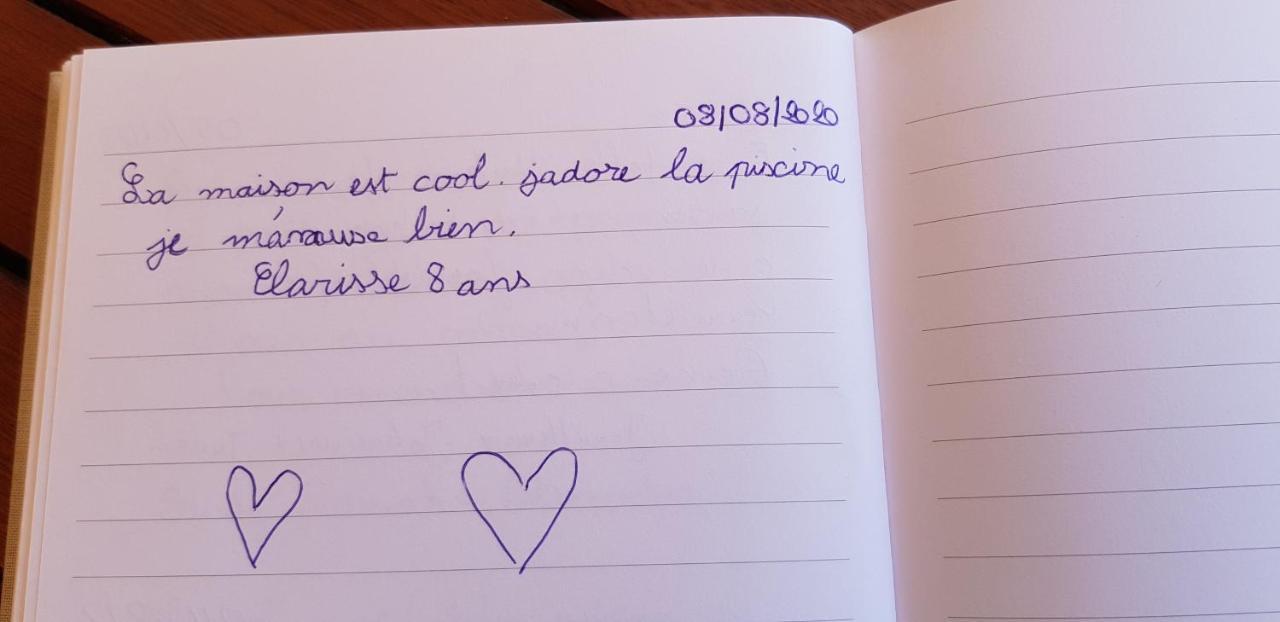 08/08/2020
La maison est cool. jadore la piscine
je m'amuse bien.
Clarisse 8 ans